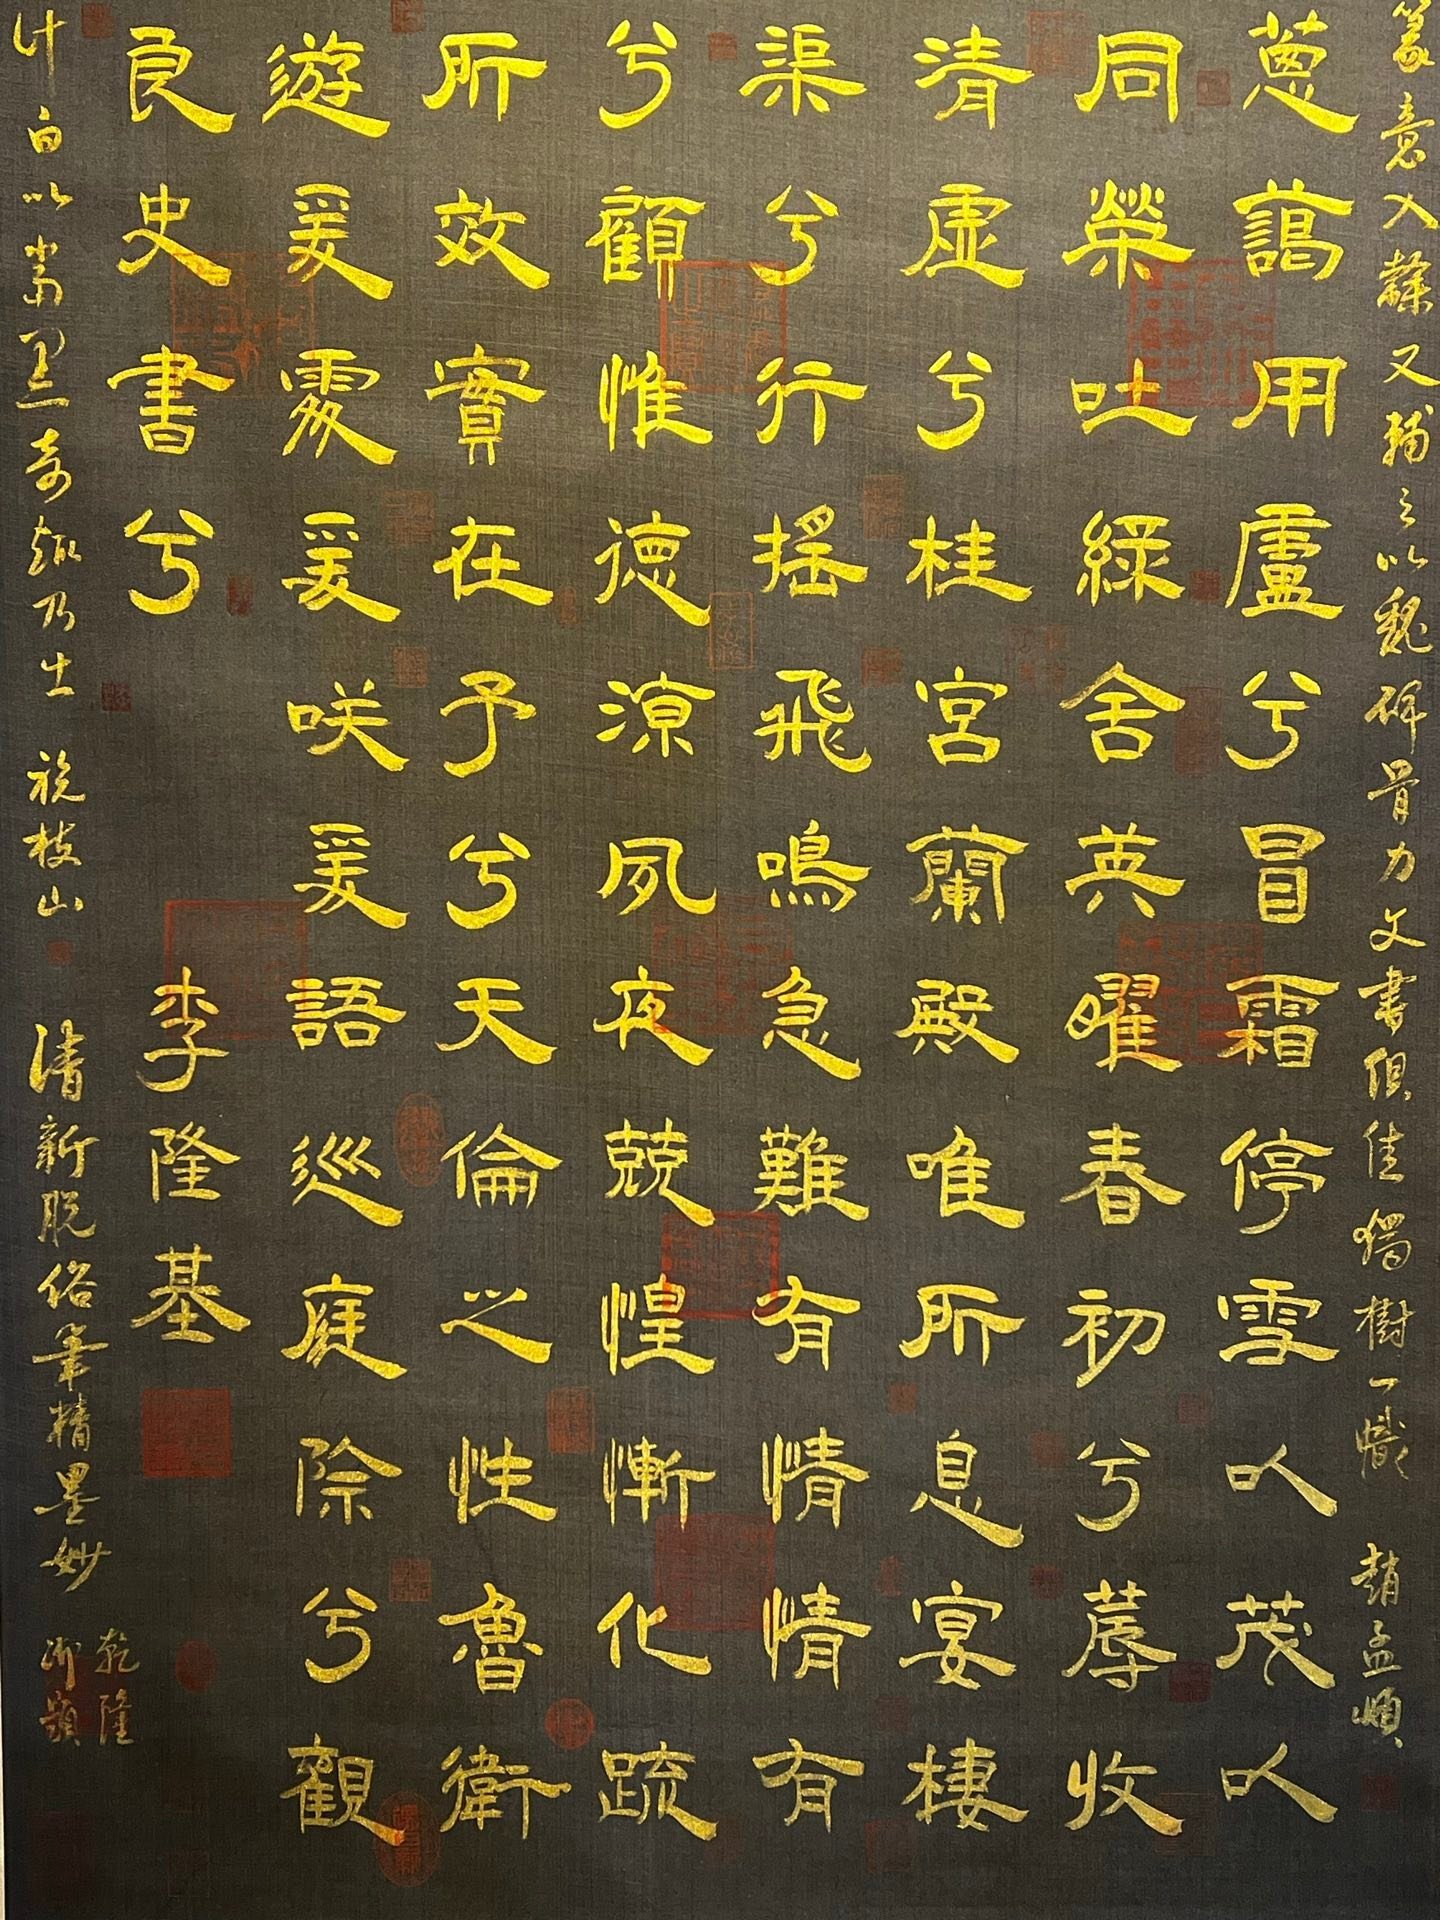 篆意入隸又輔之以魏碑骨力文書俱佳獨樹一幟 趙孟頫
蔥蔼用盧兮冒霜停雪以茂以
同榮吐綠舍英曜春初兮蓐收
清虛兮桂宮蘭殿唯所息宴棲
渠兮行搖飛鳴急難有情情有
兮顧惟德涼夙夜兢惶慚化疏
所效實在予兮天倫之性魯衛
遊爰處爰咲爰語巡庭除兮觀
良史書兮 李隆基
計白以當黑奇趣乃出 祝枝山 清新脫俗筆精墨妙
乾隆
御題